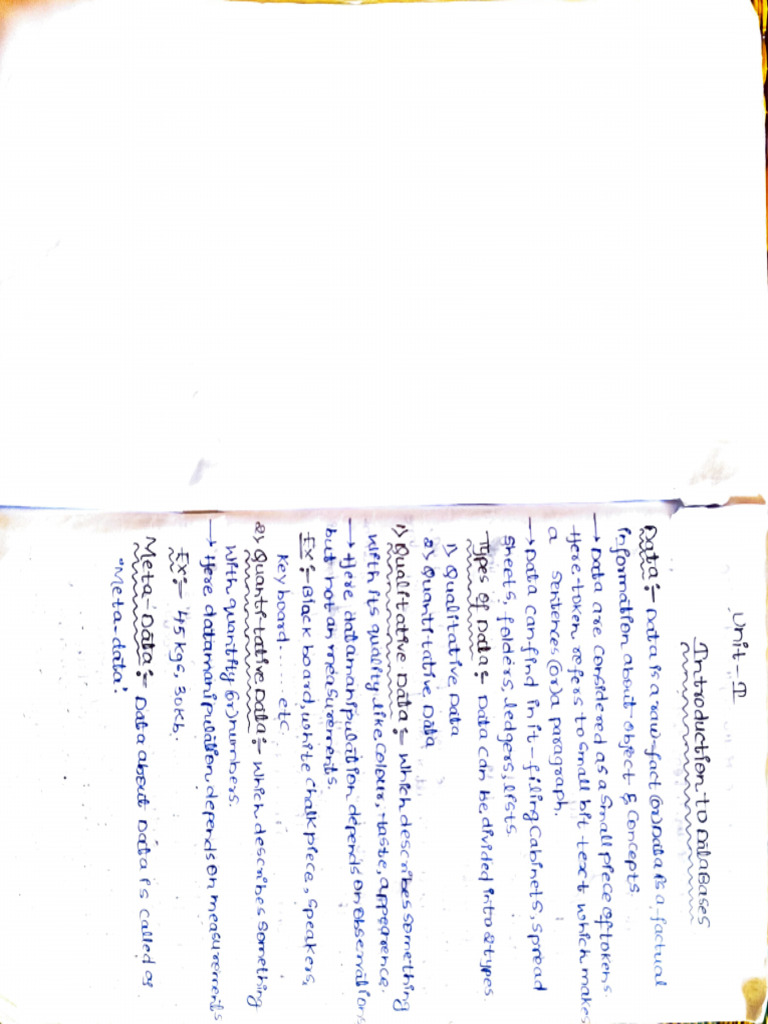 Unit-I
Introduction to DataBases
Data:- Data is a raw-fact (or) Data is a factual
information about object & Concepts.
→ Data are considered as a small piece of tokens.
Here-token refers to small bit text which makes
a sentences (or) a paragraph.
→ Data can find in it-filing Cabinets, spread
sheets, folders, ledgers, lists.
Types of Data:- Data can be divided into 2 types.
1) Qualitative Data
2) Quantitative Data
1) Qualitative Data:- Which describes something
with its quality like colour, taste, appearence.
→ Here datamanipulation depends on observations
but not an measurements.
Ex:- Black board, white chalk piece, speakers,
key board...... etc
2) Quanti-tative Data:- Which describes something
with quantity (or) numbers.
→ Here datamanipulation depends on measurements
Ex:- 45 kgs, 30 kb.
Meta-Data:- Data about Data is called as
"Meta-data'.